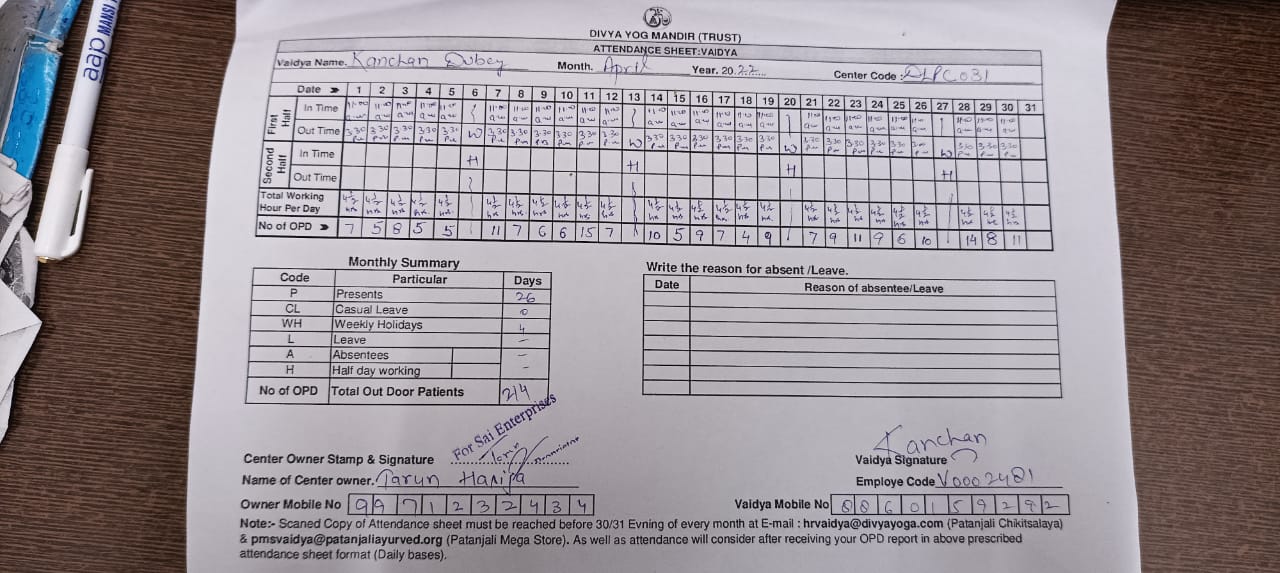 aap MANSI
DIVYA YOG MANDIR (TRUST)
ATTENDANCE SHEET:VAIDYA
Vaidya Name. Kanchan Dubey Month. April Year. 2022 Center Code :
Date 1 2 3 4 5 6 7 8 9 10 11 12 13 14 15 16 17 18 19 20 21 22 23 24 25 26 27 28 29 30 31
First Half
In Time 11:00 am 11:00 am 11:00 am 11:00 am 11:00 am 11:00 am 11:00 am 11:00 am 11:00 am 11:00 am 11:00 am 11:00 am 11:00 am 11:00 am 11:00 am 11:00 am 11:00 am 11:00 am 11:00 am 11:00 am 11:00 am 11:00 am 11:00 am 11:00 am 11:00 am 11:00 am
Out Time 3:30 Pm 3:30 Pm 3:30 Pm 3:30 Pm 3:30 Pm W 3:30 Pm 3:30 Pm 3:30 Pm 3:30 Pm 3:30 Pm 3:30 Pm W 3:30 Pm 3:30 Pm 3:30 Pm 3:30 Pm 3:30 Pm 3:30 Pm W 3:30 Pm 3:30 Pm 3:30 Pm 3:30 Pm 3:30 Pm W 3:30 Pm 3:30 Pm 3:30 Pm
Second Half
In Time H H H H
Out Time
Total Working
Hour Per Day 4½ hrs 4½ hrs 4½ hrs 4½ hrs 4½ hrs 4½ hrs 4½ hrs 4½ hrs 4½ hrs 4½ hrs 4½ hrs 4½ hrs 4½ hrs 4½ hrs 4½ hrs 4½ hrs 4½ hrs 4½ hrs 4½ hrs 4½ hrs 4½ hrs 4½ hrs 4½ hrs 4½ hrs 4½ hrs 4½ hrs
No of OPD 7 5 8 5 5 11 7 6 6 15 7 10 5 9 7 4 9 7 9 11 9 6 10 14 8 11
Monthly Summary
Code Particular Days
P Presents 26
CL Casual Leave 0
WH Weekly Holidays 4
L Leave -
A Absentees -
H Half day working -
No of OPD Total Out Door Patients 214
Write the reason for absent /Leave.
Date Reason of absentee/Leave
For Sai Enterprises
Center Owner Stamp & Signature
Name of Center owner. Tarun
Owner Mobile No 9971232434
Kanchan
Vaidya Signature
Employe Code V0002481
Vaidya Mobile No 8860159292
Note:- Scaned Copy of Attendance sheet must be reached before 30/31 Evning of every month at E-mail : hrvaidya@divyayoga.com (Patanjali Chikitsalaya)
& pmsvaidya@patanjaliayurved.org (Patanjali Mega Store). As well as attendance will consider after receiving your OPD report in above prescribed
attendance sheet format (Daily bases).